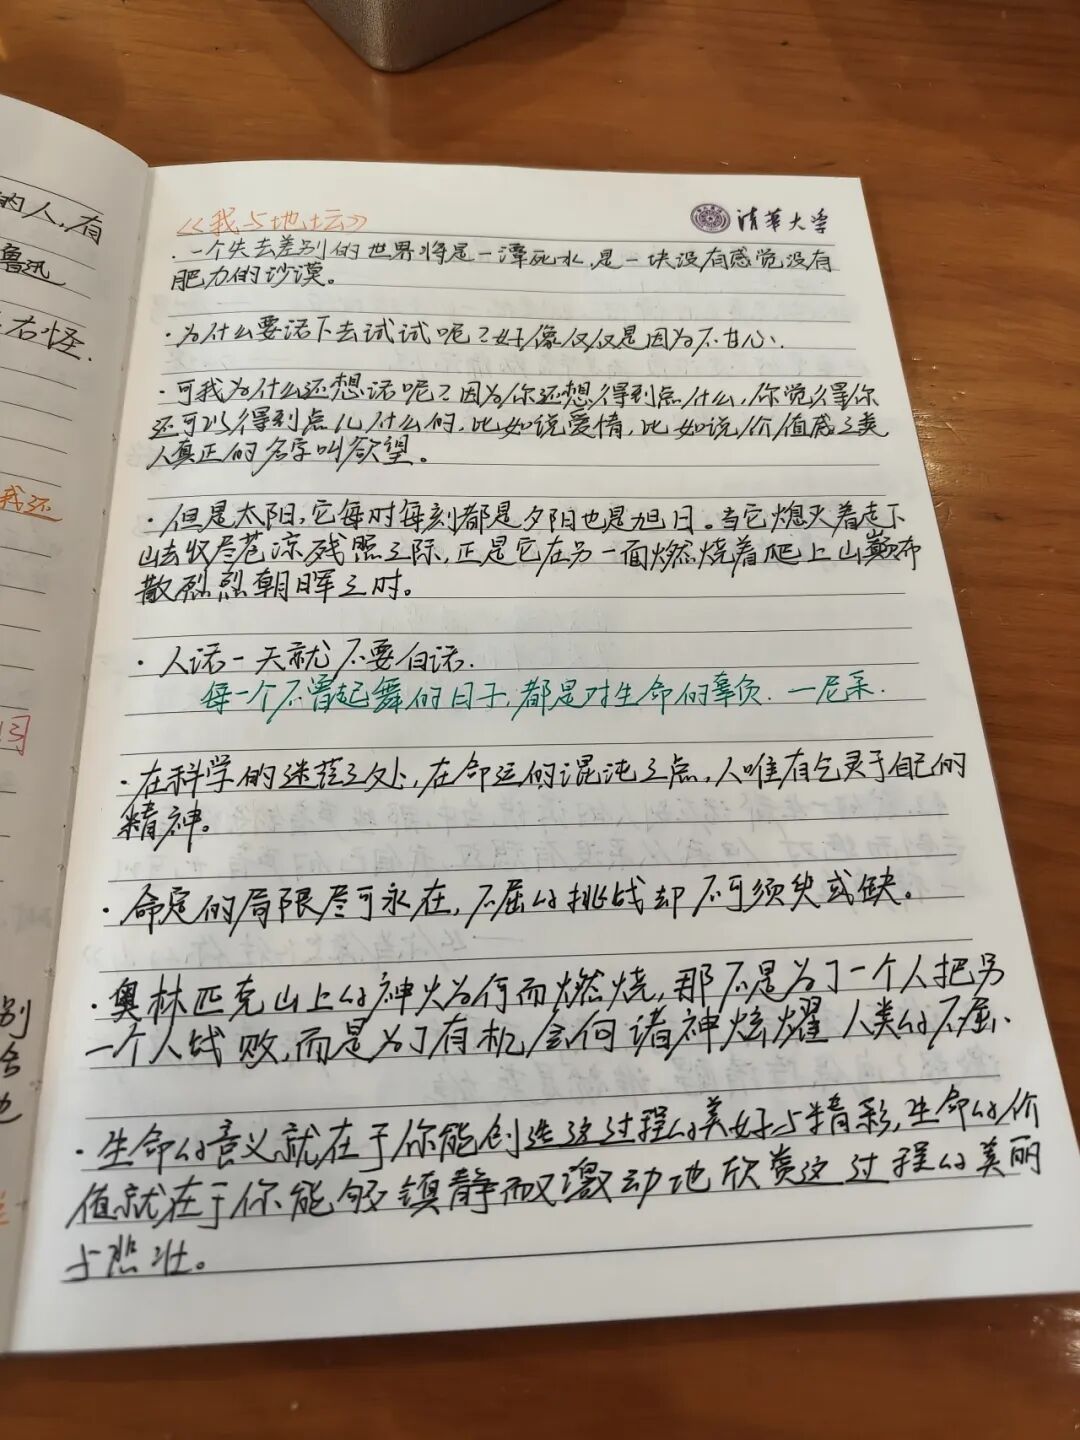 的人,有
鲁迅
右怪.
我还
习
别
也
《我与地坛》
清华大学
·一个失去差别的世界将是一潭死水,是一块没有感觉没有
肥力的沙漠。
·为什么要活下去试试呢?好像仅仅是因为不甘心.
·可我为什么还想活呢?因为你还想得到点什么,你觉得你
还可以得到点儿什么的,比如说爱情,比如说价值感之类
人真正的名字叫欲望。
·但是太阳,它每时每刻都是夕阳也是旭日。当它熄灭着走下
山去收尽苍凉残照之际,正是它在另一面燃烧着爬上山巅布
散烈烈朝晖之时。
·人活一天就不要白活.
每一个不曾起舞的日子,都是对生命的辜负.—尼采.
·在科学的迷茫之处,在命运的混沌之点,人唯有乞灵于自己的
精神。
·命定的局限尽可永在,不屈的挑战却不可须臾或缺。
·奥林匹克山上的神火为何而燃烧,那不是为了一个人把另
一个人战败,而是为了有机会向诸神炫耀人类的不屈、
·生命的意义就在于你能创造这过程的美好与精彩,生命的价
值就在于你能够镇静而又激动地欣赏这过程的美丽
与悲壮。